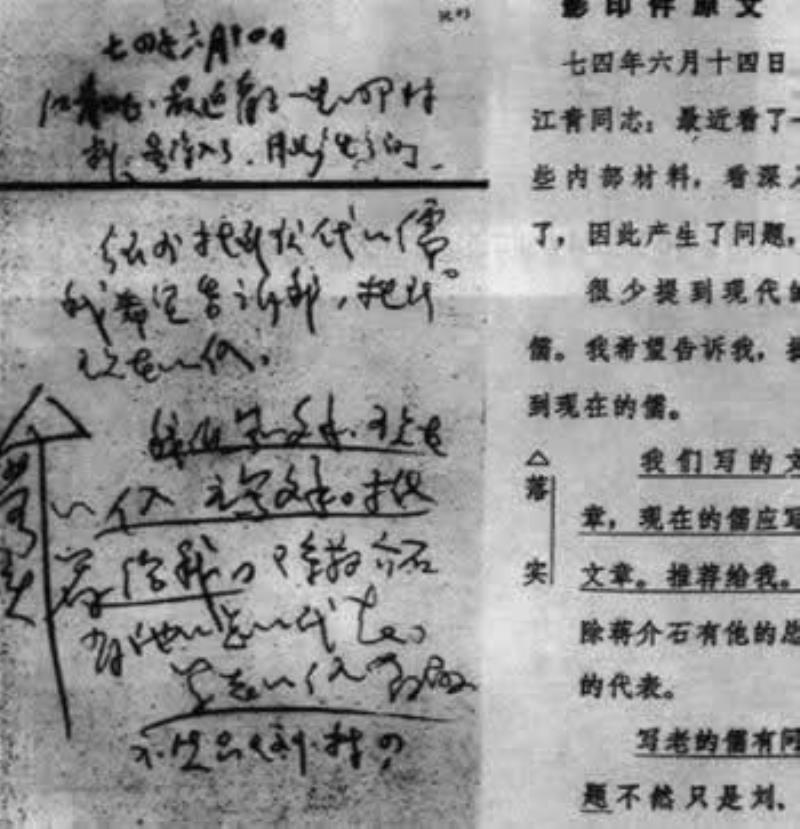 七四年六月十四日
江青同志:最近看了一些内部材
料,看深入了,因此产生了问题。
很少提到现代的儒。
我希望告诉我,提到
现在的儒。
落实
我们写的文章,现在
的儒应写文章。推
荐给我。除蒋介石
有他的总的代表。
写老的儒有问题
影印件原文
七四年六月十四日
江青同志:最近看了一
些内部材料,看深入
了,因此产生了问题,
很少提到现代的
儒。我希望告诉我,提
到现在的儒。
△落实
我们写的文
章,现在的儒应写
文章。推荐给我。
除蒋介石有他的总
的代表。
写老的儒有问
题不然只是刘、